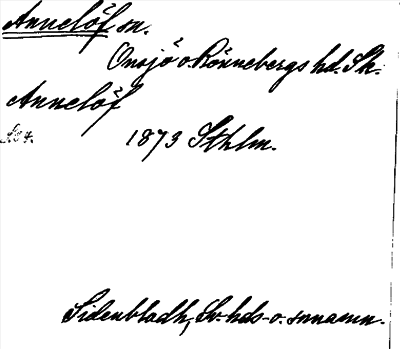 Annelöf sn.
Onsjö o Rönnebergs hd. Sk.
Annelöf
1873 Sthlm.
Sidenbladh, Sv. hds- o. snnamn.